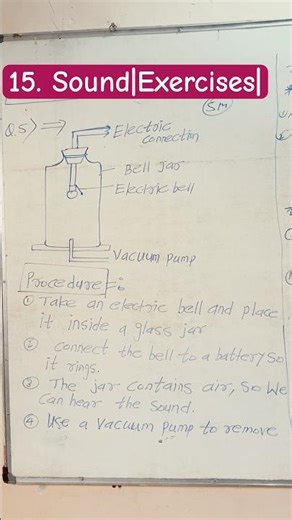 15. Sound|Exercises|
5M
Q.5) ⇒
Electric
connection
Bell jar
Electric bell
Vacuum pump
Procedure :-
① Take an electric bell and place
it inside a glass jar
② connect the bell to a battery so
it rings.
③ The jar contains air, so we
can hear the sound.
④ Use a vacuum pump to remove